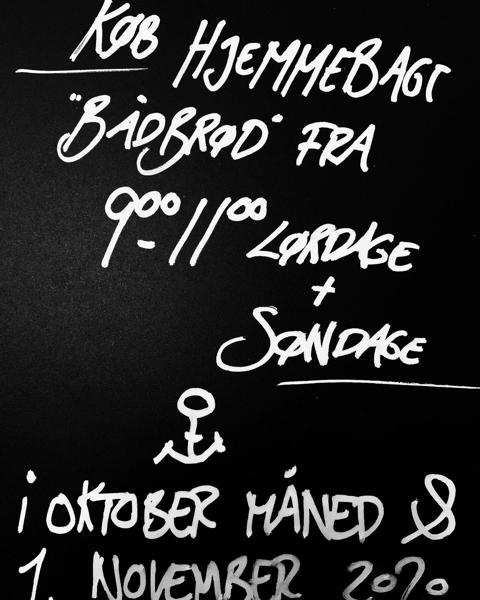 KØB HJEMMEBAGT
"BÅDBRØD" FRA
9⁰⁰-11⁰⁰ LØRDAGE
+
SØNDAGE
i OKTOBER MÅNED &
1. NOVEMBER 2020